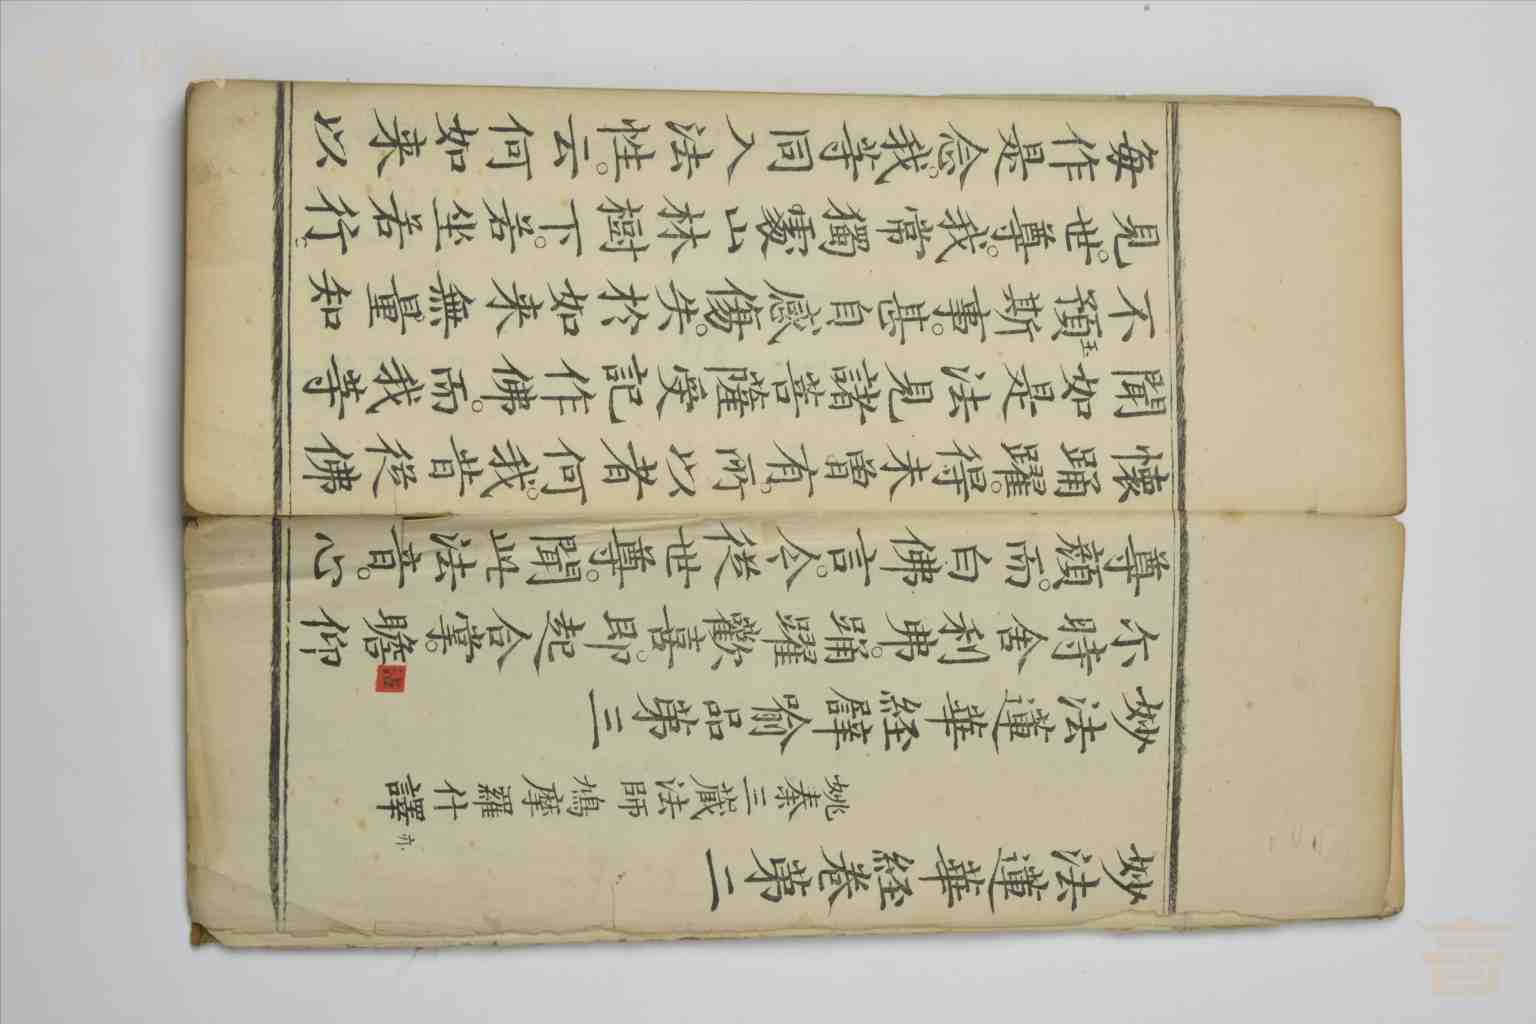 妙法蓮華経卷第二
姚秦三藏法師鳩摩羅什譯
妙法蓮華経譬喻品第三
尒時舍利弗。踊躍歡喜。即起合掌。瞻仰
尊顏。而白佛言。今從世尊。聞此法音。心
懷踊躍。得未曾有。所以者何。我昔從佛
聞如是法見諸菩薩受記作佛。而我等
不預斯事。甚自感傷。失於如来無量知
見。世尊。我常獨處山林樹下。若坐若行
每作是念。我等同入法性。云何如来以